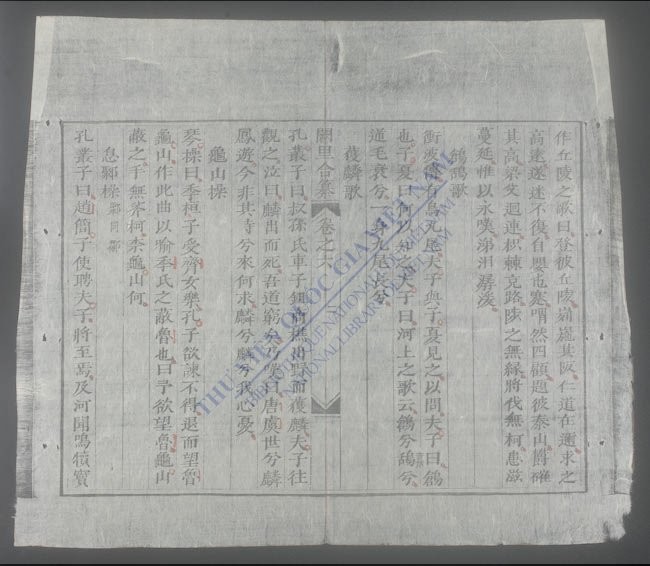 作丘陵之歌曰登彼丘陵崱嶷其阪仁道在邇求之
高遠遂迷不復自嬰屯蹇喟然四顧題彼泰山鬱確
其高梁父迴連枳棘充路陟之無緣將伐無柯患滋
蔓延惟以永嘆涕泪潺湲
鶬鴰歌
衝波傳有鳥九尾夫子與子夏見之以問夫子曰鶬
也子夏曰何以知之夫子曰河上之歌云鶬兮鴰兮
逆毛衰兮一身九尾長兮
獲麟歌
闕里合纂 卷之六
孔叢子曰叔孫氏車子鉏商樵於野而獲麟夫子往
觀之泣曰麟出而死吾道窮矣乃歌曰唐虞世兮麟
鳳遊今非其時兮來何求麟兮麟兮我心憂
龜山操
琴操曰季桓子受齊女樂孔子欲諫不得退而望魯
龜山作此曲以喻季氏之蔽魯也曰予欲望魯龜山
蔽之手無斧柯柰龜山何
息鄹操 鄹同鄒
孔叢子曰趙簡子使聘夫子將至焉及河聞鳴犢竇
THƯ VIỆN QUỐC GIA VIỆT NAM